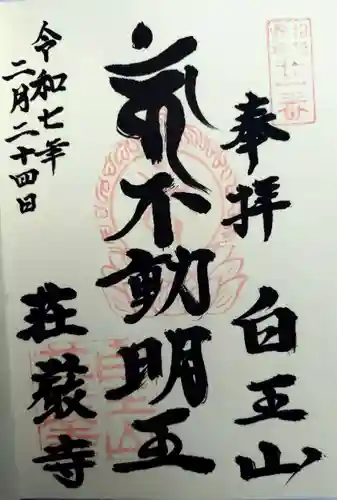 奉拝
白王山
不動明王
荘厳寺
令和七年
二月二十四日